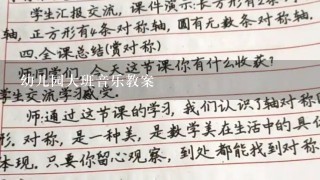 学生汇报交流，课件演示：长方形有2条
轴，正方形有4条对称轴，圆有无数条对称轴.
四.全课总结(赏对称)
今天这节课你有什么收获?
幼儿园大班音乐教案
学生交流学习
师：通过这节课的学习，我们认识了轴对称
形.对称，是一种美，是数学美在生活中的具
体现.只要你留心观察，到处都能找到对称